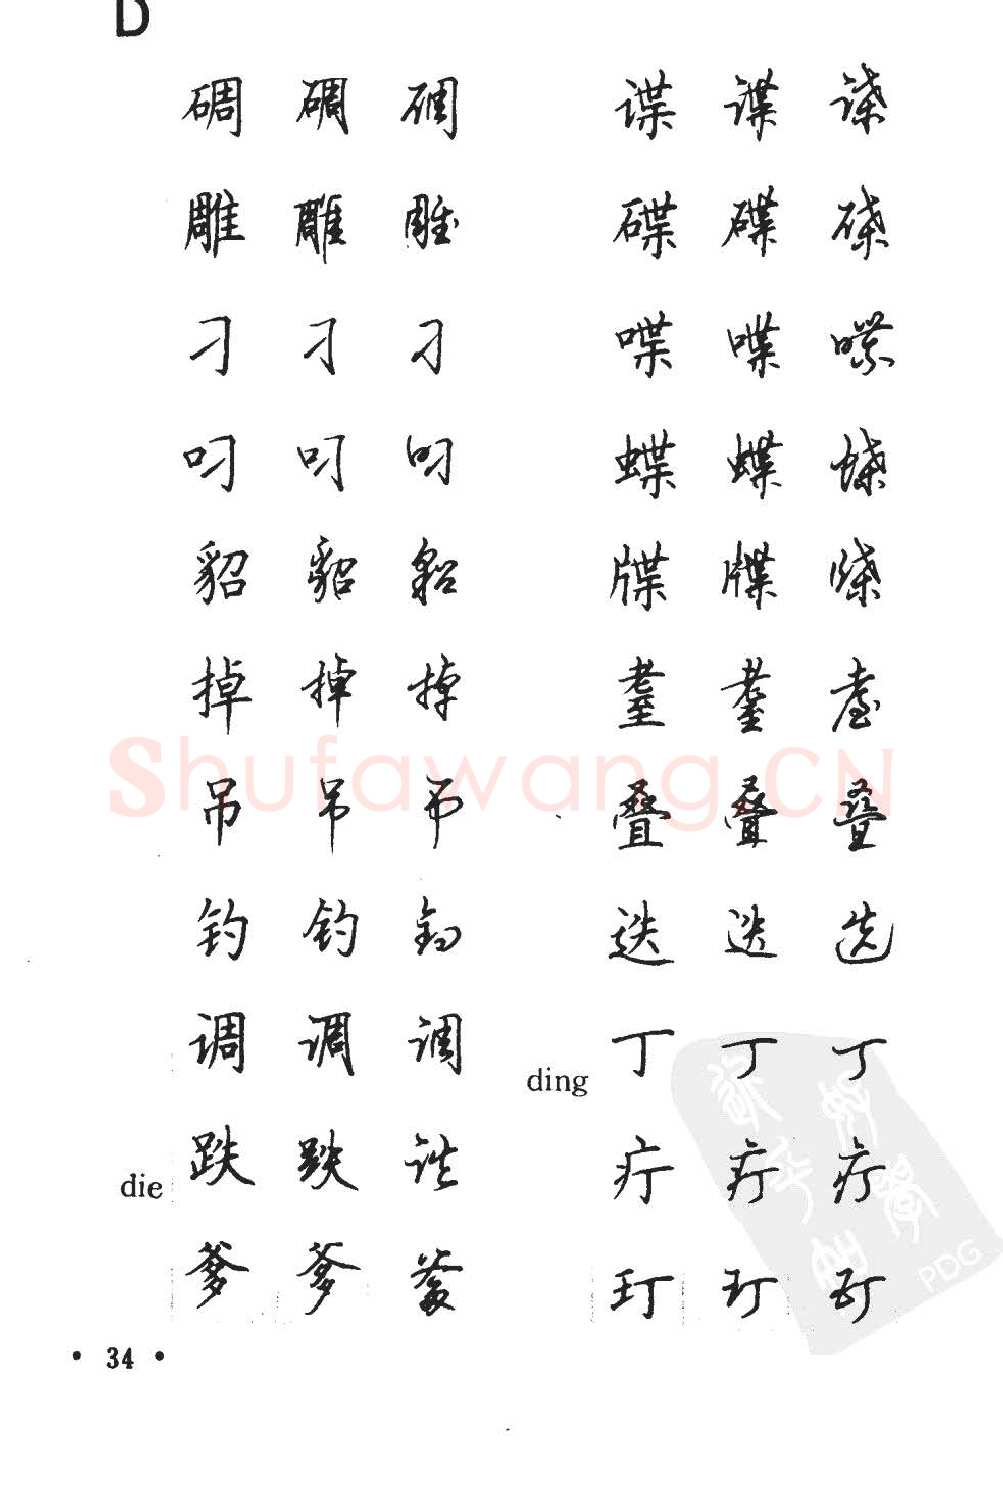 D
碉 碉 碉
雕 雕 雕
刁 刁 刁
叼 叼 叼
貂 貂 貂
掉 掉 掉
吊 吊 吊
钓 钓 钓
调 调 调
die 跌 跌 跌
爹 爹 爹
谍 谍 谍
碟 碟 碟
喋 喋 喋
蝶 蝶 蝶
牒 牒 牒
耋 耋 耋
叠 叠 叠
迭 迭 迭
ding 丁 丁 丁
疔 疔 疔
玎 玎 玎
• 34 •
Shufawang.CN
PDG